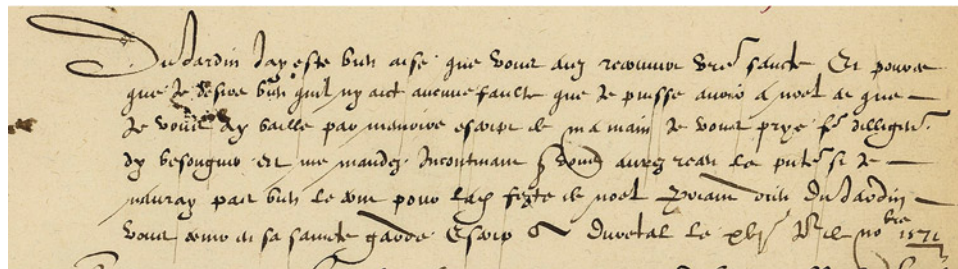 Dujardin Jay este bien aise que vous avez recouvré vre santé Et pource
que Je desire bien quil ny ait aucune faulte que Je puisse avoir a noel ce que
Je vous ay baille par memoire escript de ma main Je vous prye fe dilligence
dy besongner et me mandez Incontinant vous aurez receu la pnte si Je
nauray pas bien le tout pour la feste de noel Priant dieu Dujardin
vous avoir en sa saincte garde Escript a Duretal le de nobre 1571